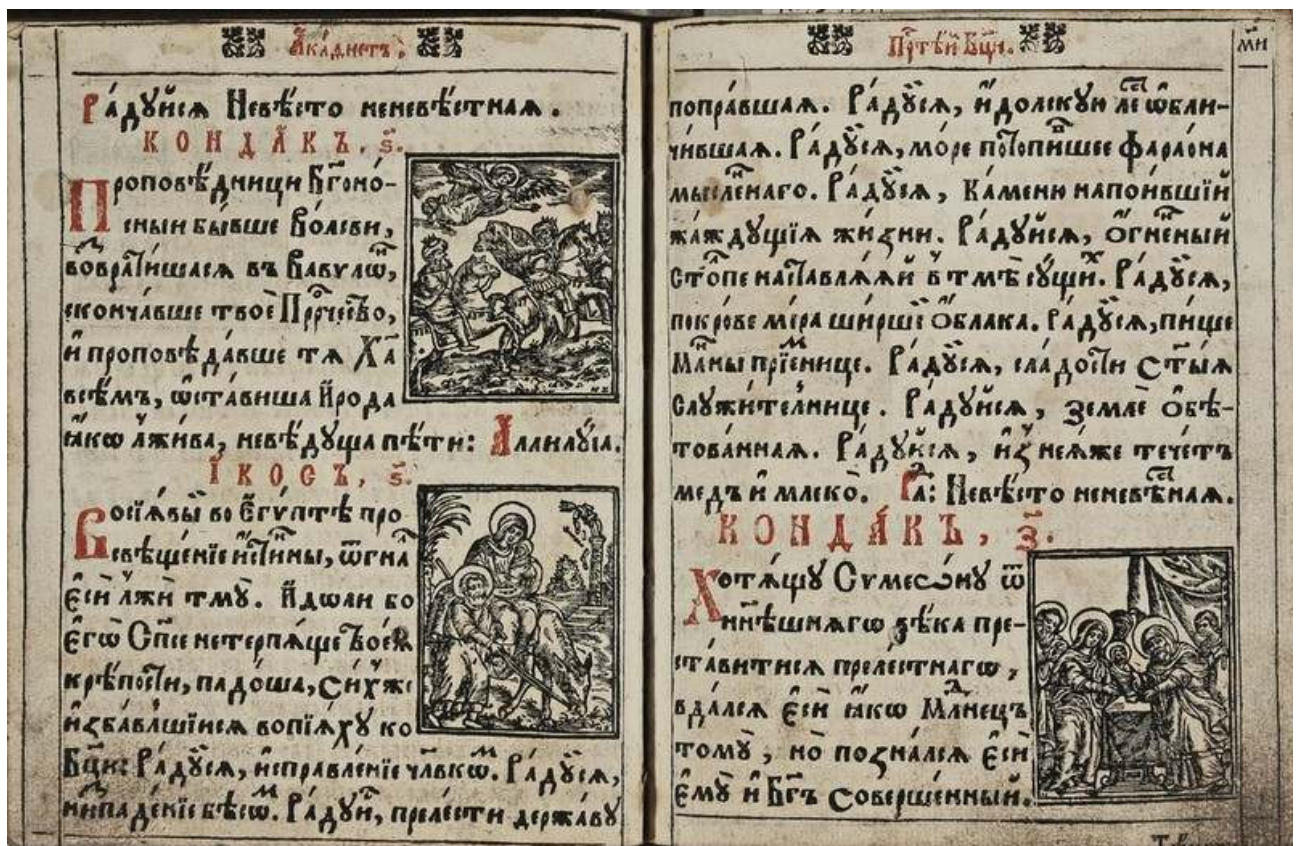 А҆ка́ѳистъ:
Ра́дꙋйсѧ Невѣ́сто неневѣ́стнаѧ.
КОНДА́КЪ, ѕ҃.
Проповѣ́дницы Бг҃оно́-
сныи бы́вше Во́лсви,
вовратⷤи́шасѧ въ Вавѷлѡ́,
скончáвше твоѐ Прⷪ҇рчество,
и҆ проповѣ́давше тѧ Хⷭ҇а̀
всѣ́мъ, ѡ҆ста́виша И҆́рода
ꙗ҆́кѡ лжи́ва, невѣ́дꙋща пѣ́ти: А҆ллилꙋ́їа.
І҆́КОСЪ, ѕ҃.
Восїѧ́вый во Е҆гѵ́птѣ про-
свѣще́нїе и҆́стины, ѿгна́лъ
є҆сѝ лжѝ тмꙋ̀. И҆́дѡли бо
є҆гѡ̀ Сп҃се нетерпѧ́ще твоеѧ̀
крѣ́пости, падо́ша, си́хже
и҆зба́вльшїисѧ вопїѧ́хꙋ ко
Бц҃ы: Ра́дꙋсѧ, и҆справле́нїе чл҃вкѡⷨ. Ра́дꙋсѧ,
ниспаде́нїе бѣсѡⷨ. Ра́дꙋйсѧ, преле́сти держа́вꙋ
Прⷭ҇тѣ́й Бц҃ы.
м҃и
попра́вшаѧ. Ра́дꙋсѧ, и҆́долскꙋю ле́сть ѡ҆бли-
чи́вшаѧ. Ра́дꙋсѧ, мо́ре потопи́вшее фараѡ́на
мы́сленнаго. Ра́дꙋсѧ, Ка́меню напои́вшїй
жа́ждꙋщїѧ жи́зни. Ра́дꙋйсѧ, О҆́гненый
Сто́лпе наставлѧ́ѧй въ тмѣ̀ сꙋ́щиⷯ. Ра́дꙋсѧ,
покро́ве ми́ра ши́ршїй О҆́блака. Ра́дꙋсѧ, пи́ще
Ма́нны прїе́мнице. Ра́дꙋсѧ, сла́дости Ст҃ы́ѧ
Слꙋжи́телнице. Ра́дꙋйсѧ, землѐ О҆бѣ-
това́ннаѧ. Ра́дꙋйсѧ, и҆з̾ неѧ́же тече́тъ
ме́дъ и҆ млеко̀. Раⷣ: Невѣ́сто неневѣ́стнаѧ.
КОНДА́КЪ, з҃.
Хотѧ́щꙋ Сѷмеѡ́нꙋ ѿ
ни́нѣшнѧгѡ вѣ́ка пре-
ста́витисѧ преле́стнагѡ,
вда́лсѧ є҆сѝ ꙗ҆́кѡ Млⷣнецъ
томꙋ̀, но позна́лсѧ є҆сѝ
є҆мꙋ̀ и҆ Бг҃ъ Соверше́нный.